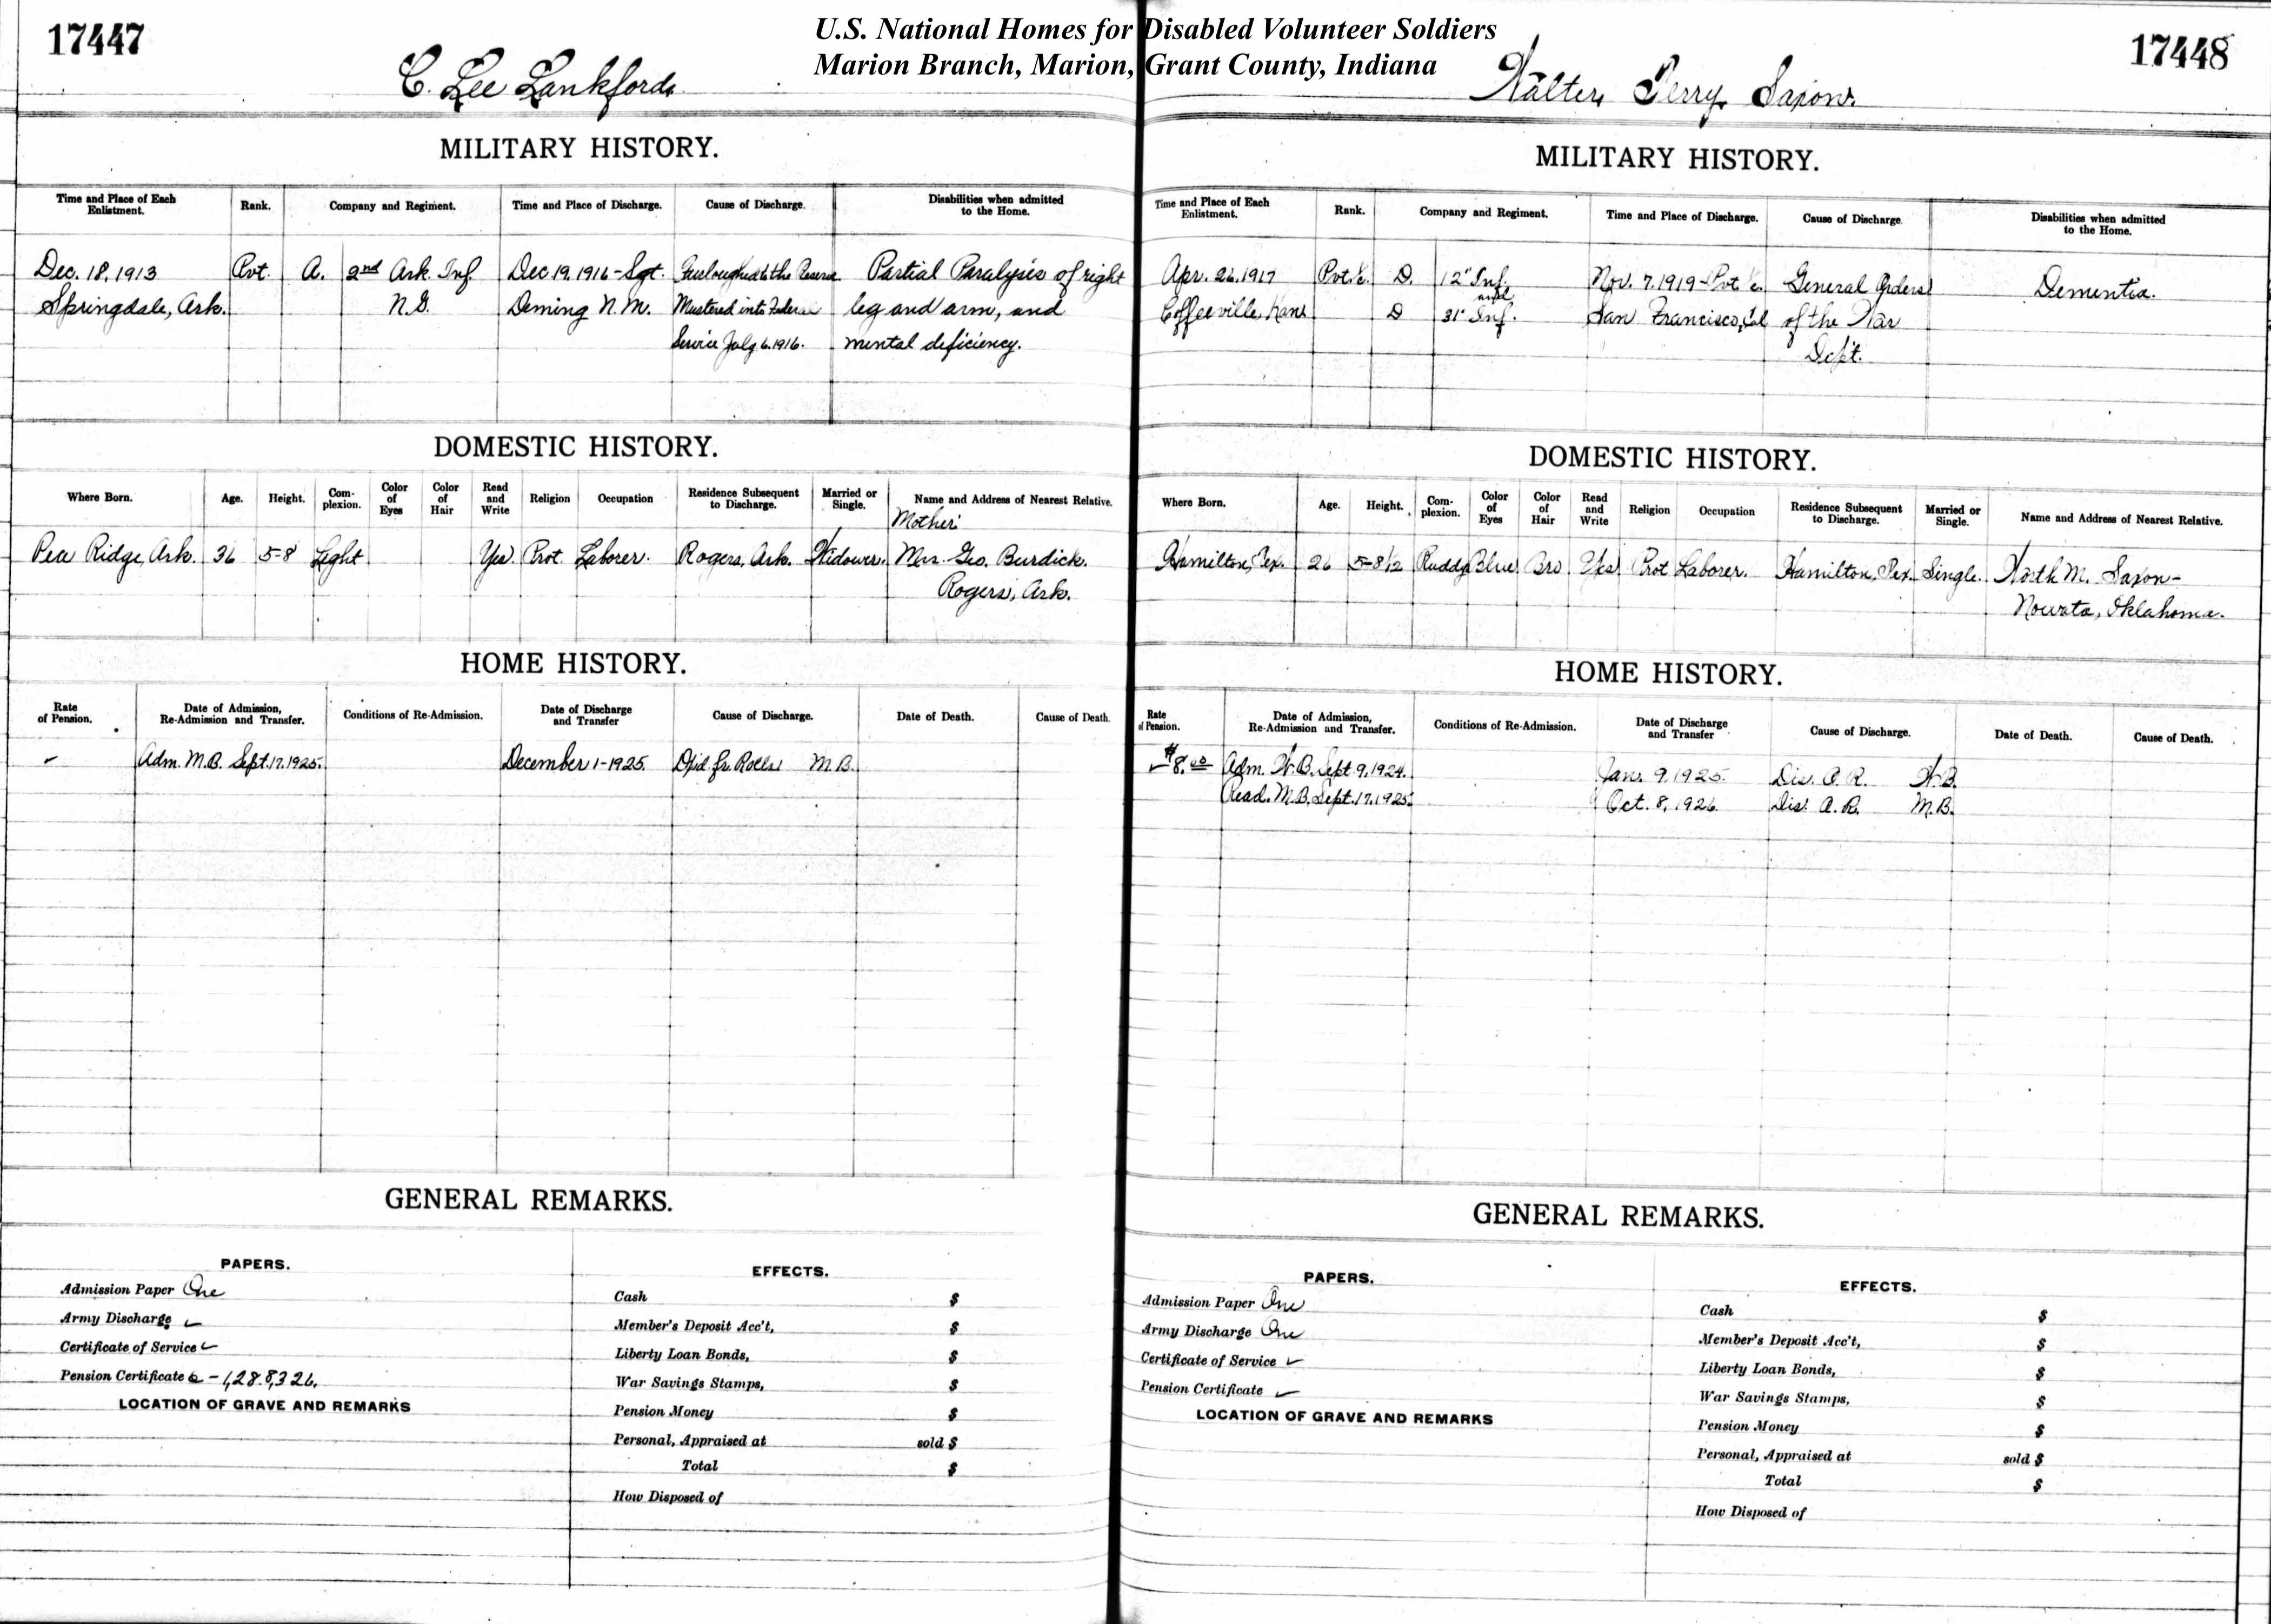 U.S. National Homes for Disabled Volunteer Soldiers
Marion Branch, Marion, Grant County, Indiana
17447
C. Lee Lankford
MILITARY HISTORY.
Time and Place of Each Enlistment. Rank. Company and Regiment. Time and Place of Discharge. Cause of Discharge. Disabilities when admitted to the Home.
Dec. 18, 1913 Pvt. A. 2nd Ark. Inf. Dec 19, 1916 - Sgt. Furloughed to the Reserve Partial Paralysis of right
Springdale, Ark. N.G. Deming N.M. Mustered into Federal leg and arm, and
Service July 6, 1916. mental deficiency.
DOMESTIC HISTORY.
Where Born. Age. Height. Complexion. Color of Eyes Color of Hair Read and Write Religion Occupation Residence Subsequent to Discharge. Married or Single. Name and Address of Nearest Relative.
Mother
Pea Ridge, Ark. 36 5-8 Light Yes. Prot. Laborer. Rogers, Ark. Widower. Mrs. Geo. Burdick.
Rogers, Ark.
HOME HISTORY.
Rate of Pension. Date of Admission, Re-Admission and Transfer. Conditions of Re-Admission. Date of Discharge and Transfer Cause of Discharge. Date of Death. Cause of Death.
Adm. M.B. Sept. 17, 1925. December 1-1925. Dpd fr. Rolls M.B.
GENERAL REMARKS.
PAPERS.
Admission Paper One
Army Discharge
Certificate of Service
Pension Certificate 1,288,326.
LOCATION OF GRAVE AND REMARKS
EFFECTS.
Cash $
Member's Deposit Acc't, $
Liberty Loan Bonds, $
War Savings Stamps, $
Pension Money $
Personal, Appraised at sold $
Total $
How Disposed of
17448
Walter Perry Saxon
MILITARY HISTORY.
Time and Place of Each Enlistment. Rank. Company and Regiment. Time and Place of Discharge. Cause of Discharge. Disabilities when admitted to the Home.
Apr. 26, 1917 Pvt. 1/c. D. 12" Inf. Nov. 7, 1919 - Pvt 1/c. General Orders Dementia.
and
Coffeeville, Kans D 31" Inf. San Francisco, Cal of the War
Dept.
DOMESTIC HISTORY.
Where Born. Age. Height. Complexion. Color of Eyes Color of Hair Read and Write Religion Occupation Residence Subsequent to Discharge. Married or Single. Name and Address of Nearest Relative.
Hamilton, Tex. 26 5-8 1/2 Ruddy Blue Bro Yes Prot Laborer. Hamilton, Tex. Single. M. Saxon -
Nowata, Oklahoma.
HOME HISTORY.
Rate of Pension. Date of Admission, Re-Admission and Transfer. Conditions of Re-Admission. Date of Discharge and Transfer Cause of Discharge. Date of Death. Cause of Death.
$8.00 Adm. W.B. Sept. 9, 1924. Jan. 9, 1925. Dis. O.R. W.B.
Read. M.B. Sept. 17, 1925. Oct. 8, 1926. Dis. M.B.
GENERAL REMARKS.
PAPERS.
Admission Paper One
Army Discharge One
Certificate of Service
Pension Certificate
LOCATION OF GRAVE AND REMARKS
EFFECTS.
Cash $
Member's Deposit Acc't, $
Liberty Loan Bonds, $
War Savings Stamps, $
Pension Money $
Personal, Appraised at sold $
Total $
How Disposed of